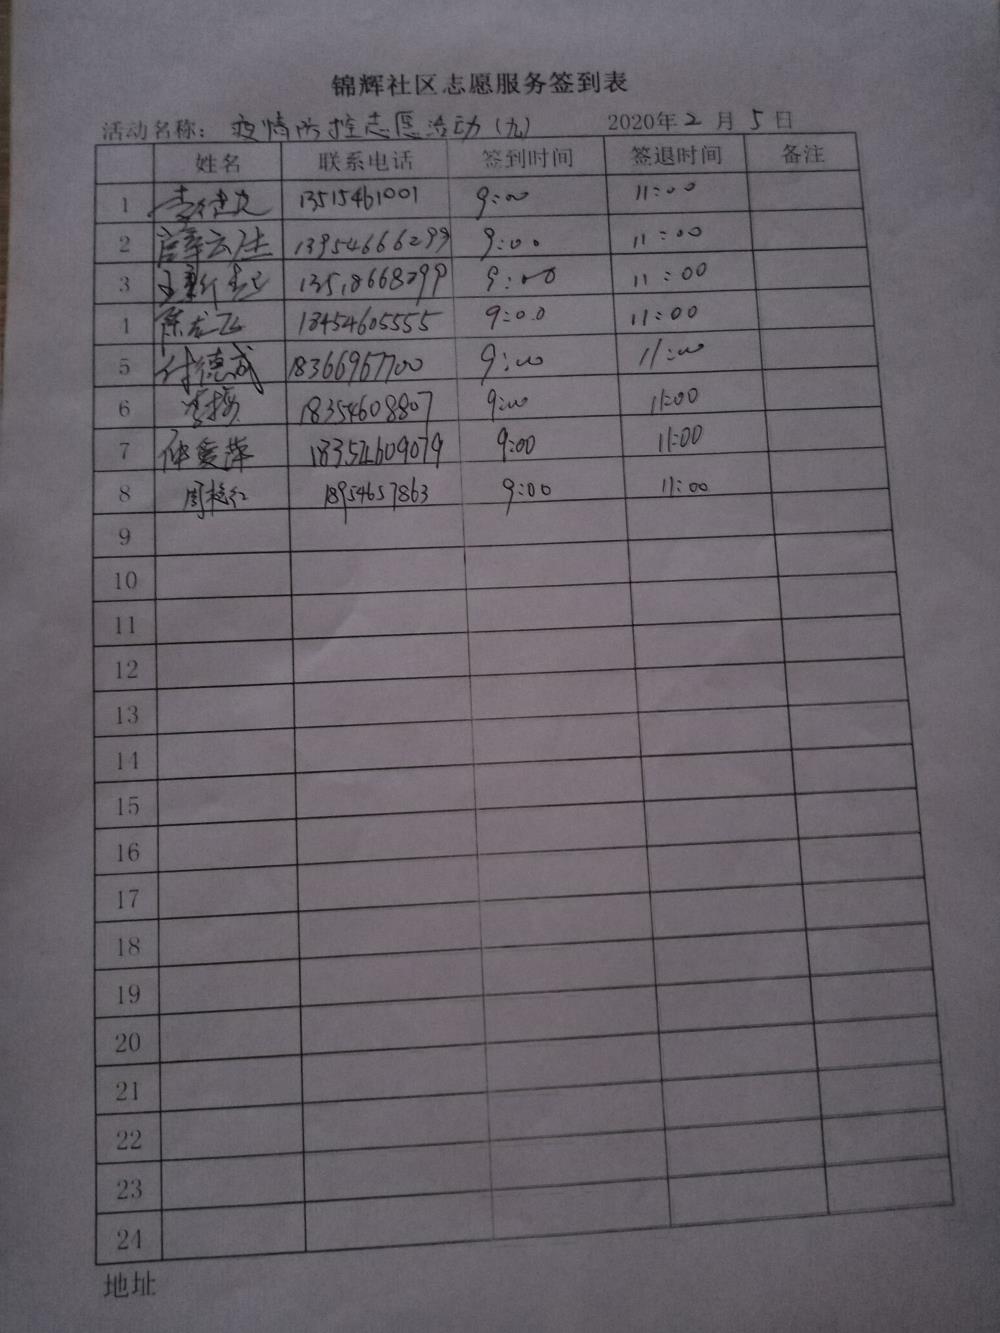 锦辉社区志愿服务签到表
活动名称： 疫情防控志愿活动（九） 2020年2月5日
姓名 联系电话 签到时间 签退时间 备注
1 13515461001 9:00 11:00
2 薛云生 13954666299 9:00 11:00
3 9:00 11:00
4 陈龙飞 18454605555 9:00 11:00
5 付德成 18366967700 9:00 11:00
6 18354608807 9:00 11:00
7 仲爱萍 18354609079 9:00 11:00
8 18954657863 9:00 11:00
9
10
11
12
13
14
15
16
17
18
19
20
21
22
23
24
地址